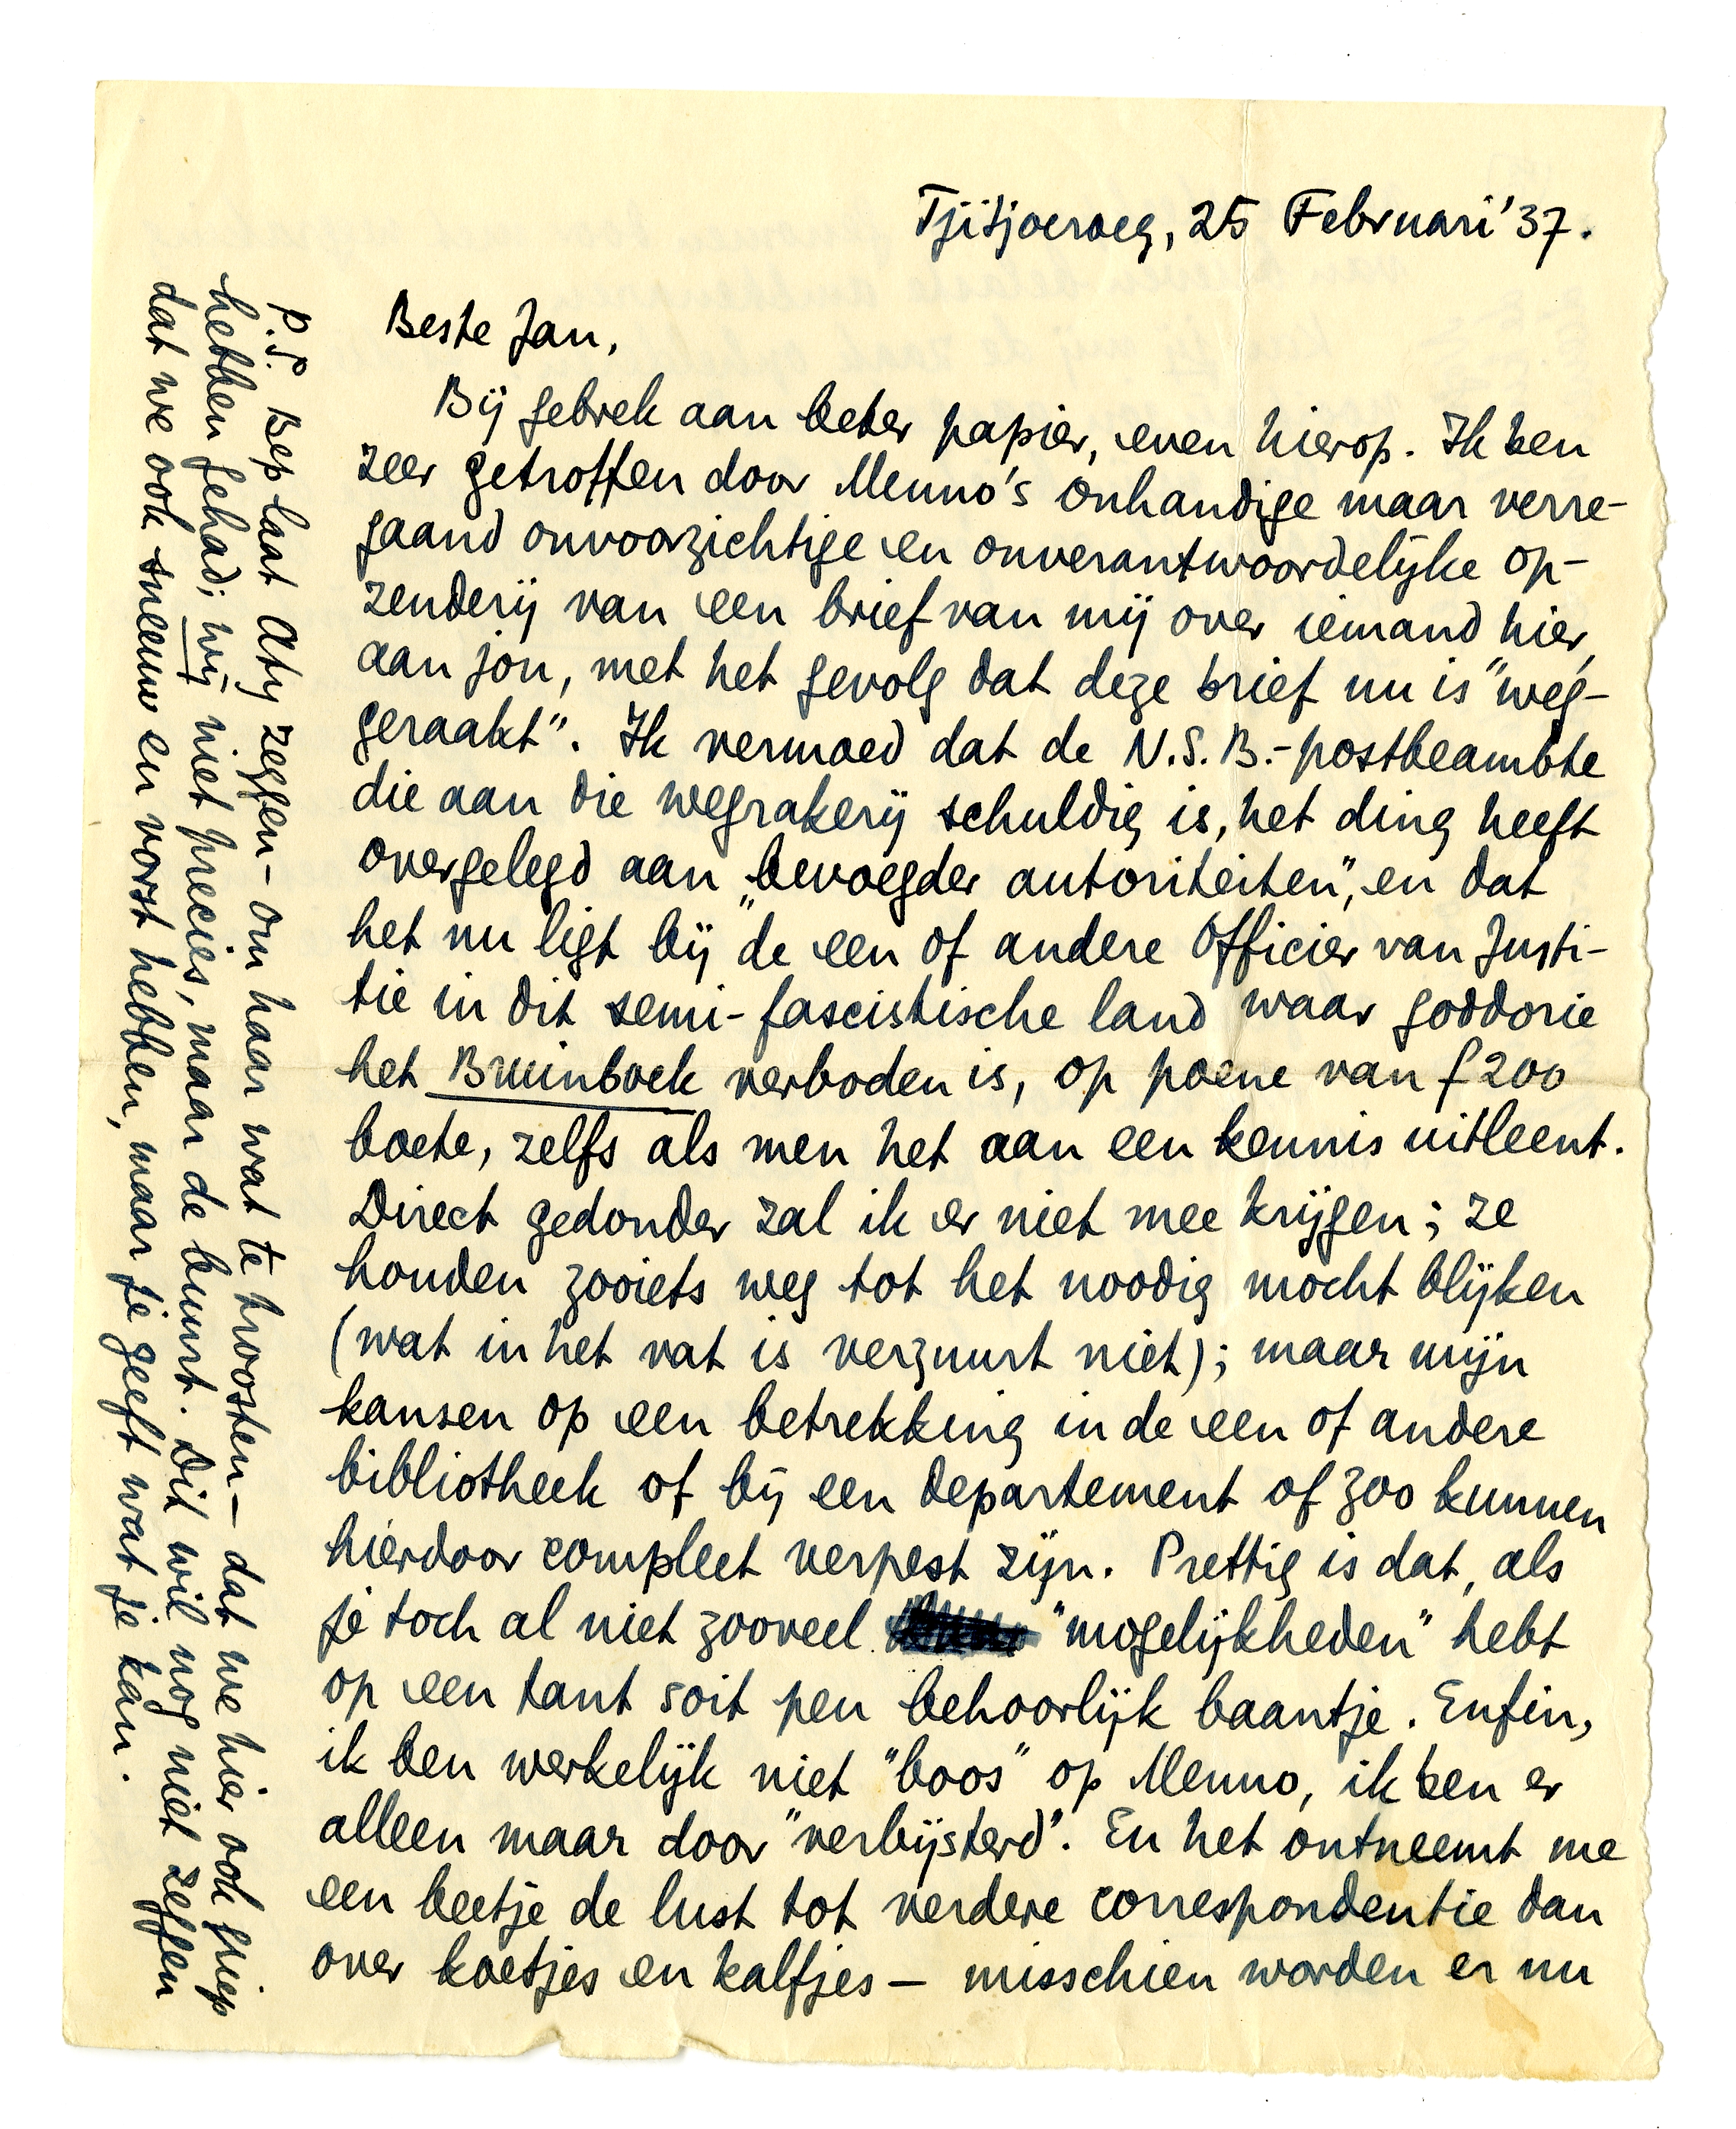 Tjitjoeroeg, 25 Februari '37.
Beste Jan,
Bij gebrek aan beter papier, even hierop. Ik ben
zeer getroffen door Menno's onhandige maar verre-
gaand onvoorzichtige en onverantwoordelijke op-
zenderij van een brief van mij over iemand hier,
aan jou, met het gevolg dat deze brief nu is "weg-
geraakt". Ik vermoed dat de N.S.B.-postbeambte
die aan die wegrakerij schuldig is, het ding heeft
overgelegd aan „bevoegder autoriteiten", en dat
het nu ligt bij de een of andere Officier van Justi-
tie in dit semi-fascistische land waar goddorie
het Bruinboek verboden is, op poene van f 200
boete, zelfs als men het aan een kennis uitleent.
Direct gedonder zal ik er niet mee krijgen; ze
houden zooiets weg tot het noodig mocht blijken
(wat in het vat is verzuurt niet); maar mijn
kansen op een betrekking in de een of andere
bibliotheek of bij een departement of zoo kunnen
hierdoor compleet verpest zijn. Prettig is dat, als
je toch al niet zooveel "mogelijkheden" hebt
op een tant soit peu behoorlijk baantje. Enfin,
ik ben werkelijk niet "boos" op Menno, ik ben er
alleen maar door "verbijsterd". En het ontneemt me
een beetje de lust tot verdere correspondentie dan
over koetjes en kalfjes — misschien worden er nu
P.S. Bep laat Aty zeggen – om haar wat te troosten – dat we hier ook griep
hebben gehad; wij niet precies, maar de buurt. Dit wil nog niet zeggen
dat we ook sneeuw en vorst hebben, maar je geeft wat je kan.